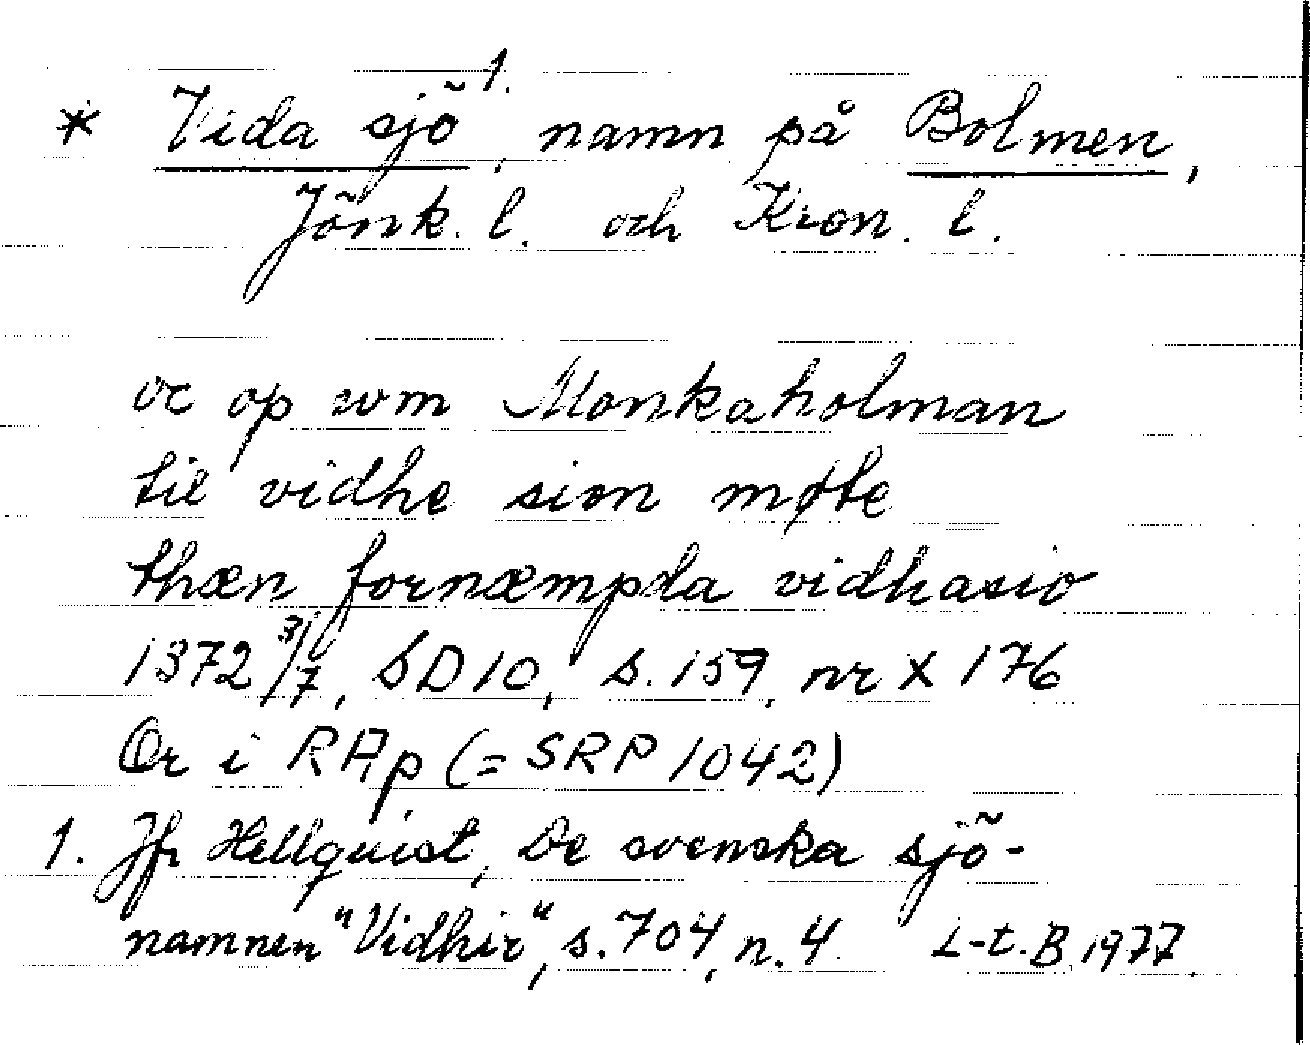 * Vida sjö 1., namn på Bolmen,
Jönk. l. och Kron. l.
oc op wm Monkaholman
til vidhe sion møte
thæn fornæmpda vidhasio
1372 3/7, SD 10, s. 159, nr X 176
Or i RAp (= SRP 1042)
1. Jfr Hellquist, De svenska sjö-
namnen "Vidhir", s. 704, n. 4 L-t. B. 1977.